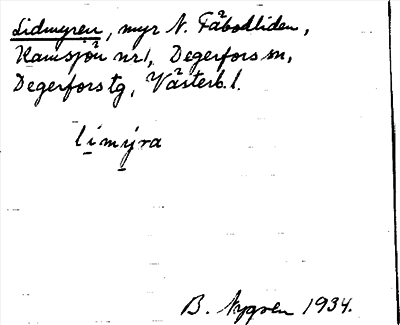 Lidmyren, myr N. Fäbodliden,
Ramsjön nr 1, Degerfors sn,
Degerfors tg, Västerb. l.
li̱mý̱ra
B. Nygren 1934.